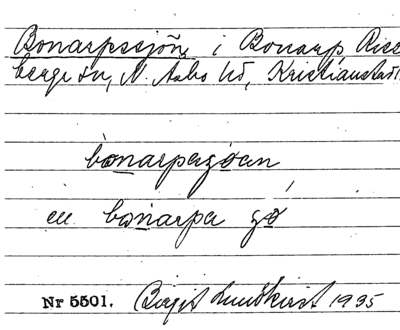 Bonarpssjön i Bonarp, Rise
berga sn, N. Åsbo hd, Kristianstads
bonarpasjøan
el. bonarpa sjø
Nr 5501. Birgit Lundkvist 1935